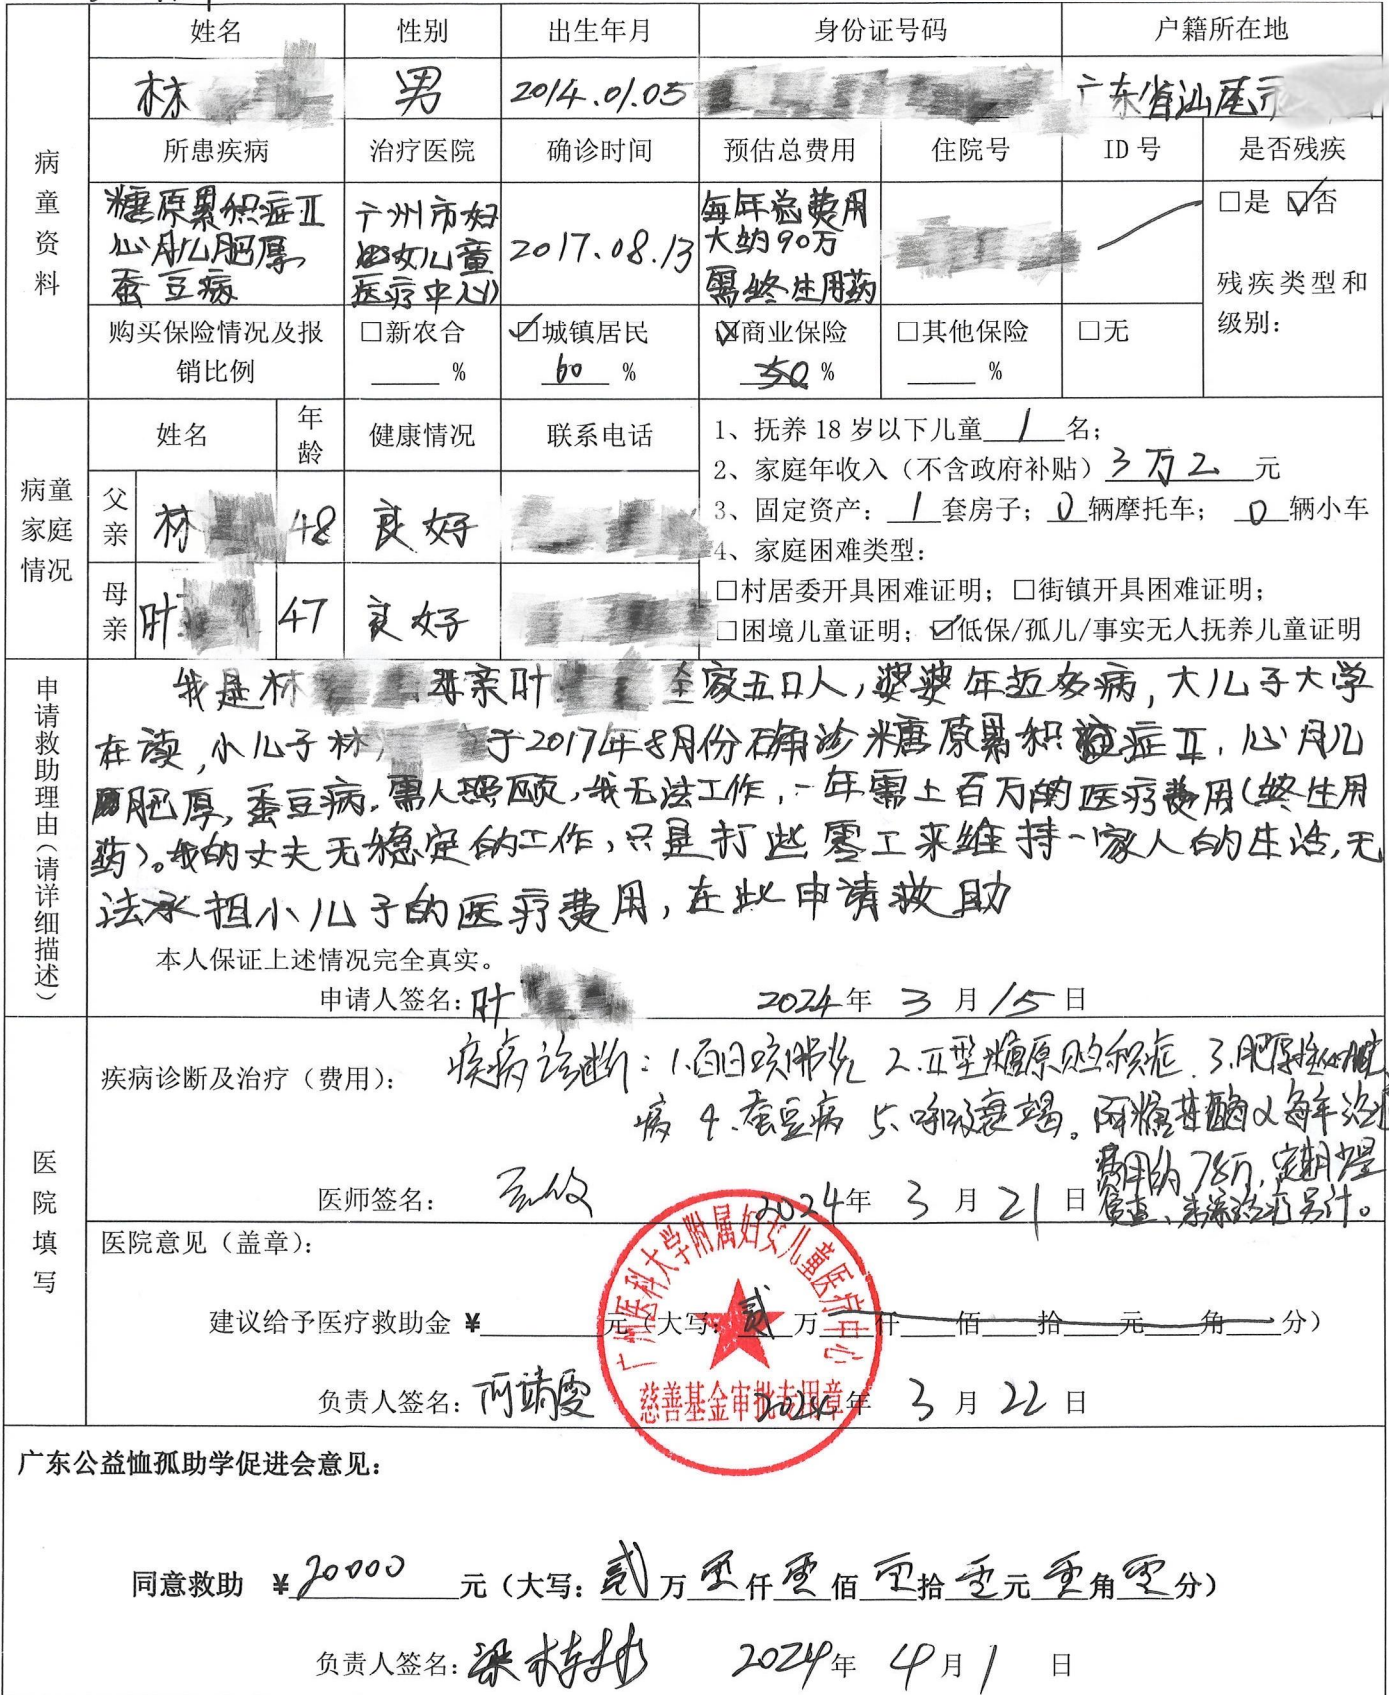 姓名 性别 出生年月 身份证号码 户籍所在地
林 男 2014.01.05 广东省汕尾市
病童资料
所患疾病 治疗医院 确诊时间 预估总费用 住院号 ID号 是否残疾
糖原累积症Ⅱ 广州市妇 每年总费用 □是 ☑否
心肌肥厚 女儿童 2017.08.13 大约90万
蚕豆病 医疗中心 需终生用药 残疾类型和
级别：
购买保险情况及报 □新农合 ☑城镇居民 ☑商业保险 □其他保险 □无
销比例 % 60 % 50 % %
病童家庭情况
姓名 年龄 健康情况 联系电话
父亲 林 48 良好
母亲 叶 47 良好
1、抚养18岁以下儿童 1 名；
2、家庭年收入（不含政府补贴）3万2 元
3、固定资产： 1 套房子； 0 辆摩托车； 0 辆小车
4、家庭困难类型：
□村居委开具困难证明；□街镇开具困难证明；
□困境儿童证明；☑低保/孤儿/事实无人抚养儿童证明
申请救助理由（请详细描述）
我是林 母亲叶 全家五口人，婆婆年迈多病，大儿子大学
在读，小儿子林 于2017年8月份确诊糖原累积症Ⅱ，心肌
肥厚，蚕豆病，需人照顾，我无法工作，一年需上百万的医疗费用（终生用
药）。我的丈夫无稳定的工作，只是打些零工来维持一家人的生活，无
法承担小儿子的医疗费用，在此申请救助
本人保证上述情况完全真实。
申请人签名：叶 2024年 3 月 15 日
医院填写
疾病诊断及治疗（费用）： 疾病诊断：1.百日咳肺炎 2.Ⅱ型糖原贮积症 3.肥厚性心肌
病 4.蚕豆病 5.呼吸衰竭。阿糖苷酶α每年治疗
费用约78万，定期
复查、 治疗另计。
医师签名： 2024年 3 月 21 日
医院意见（盖章）：
建议给予医疗救助金 ¥ 元（大写：贰 万 仟 佰 拾 元 角 分）
负责人签名： 2024年 3 月 22 日
广州医科大学附属妇女儿童医疗中心
慈善基金审批专用章
广东公益恤孤助学促进会意见：
同意救助 ¥20000 元（大写：贰万零仟零佰零拾零元零角零分）
负责人签名：梁 2024年 4月 1 日